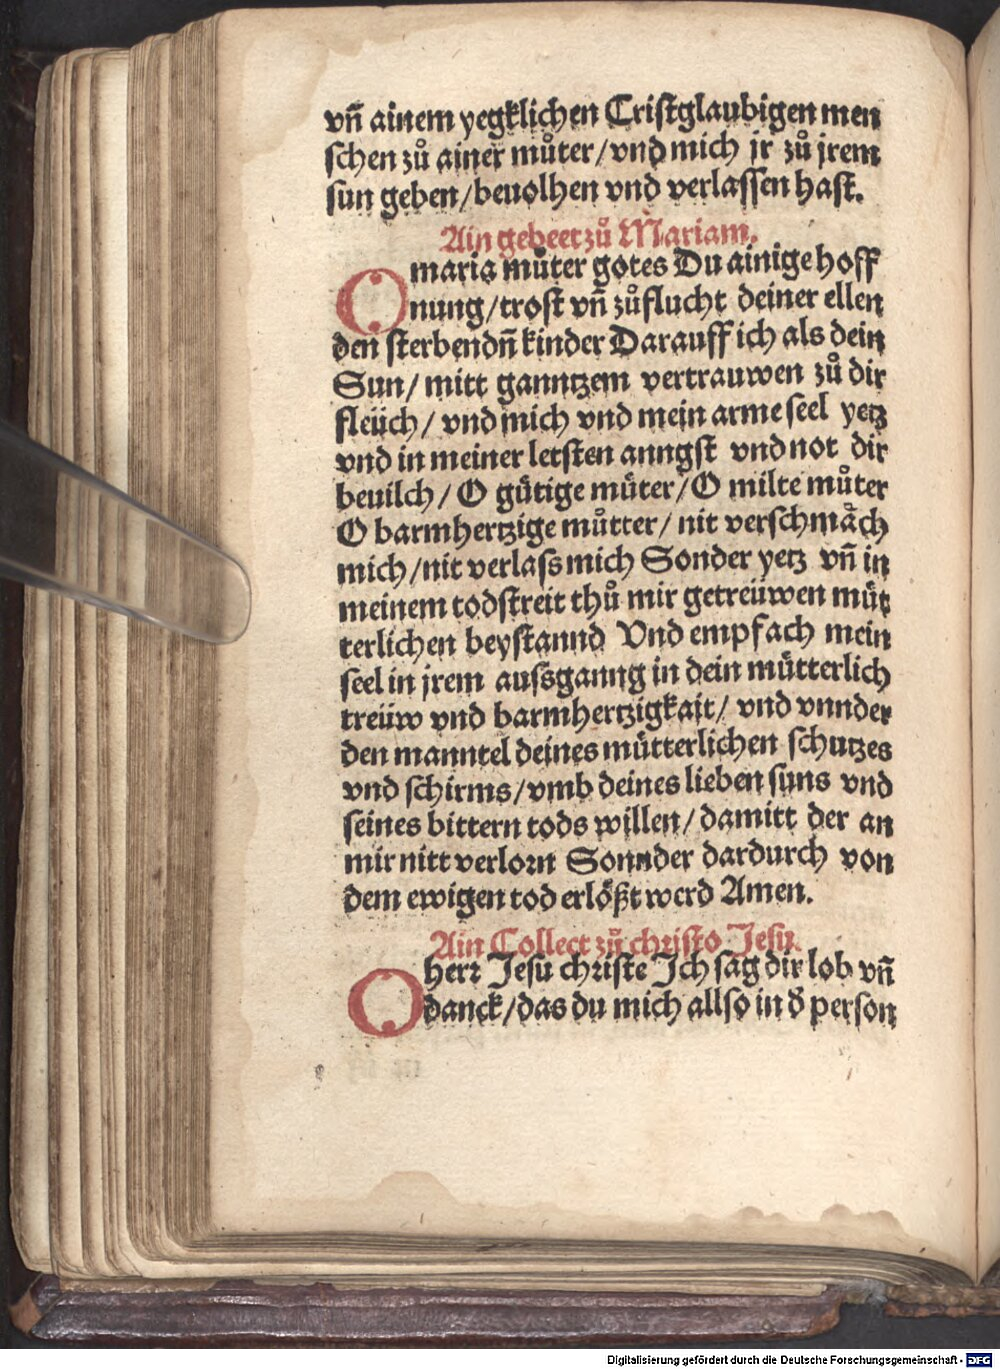 vñ ainem yegklichen Cristglaubigen men
schen zů ainer můter/vnd mich jr zů jrem
sun geben/beuolhen vnd verlassen hast.
Ain gebeet zů Mariam.
O maria můter gotes Du ainige hoff
nung/trost vñ zůflucht deiner ellen
den sterbendñ kinder Darauff ich als dein
Sun/ mitt ganntzem vertrauwen zů dir
fleüch/ vnd mich vnd mein arme seel yetz
vnd in meiner letsten anngst vnd not dir
beuilch/ O gütige müter/ O milte můter
O barmhertzige můtter/ nit verschmäch
mich/nit verlass mich Sonder yetz vñ in
meinem todstreit thů mir getreüwen müt
terlichen beystannd Vnd empfach mein
seel in jrem aussganng in dein mütterlich
treüw vnd barmhertzigkait/ vnd vnnder
den manntel deines mütterlichen schutzes
vnd schirms/vmb deines lieben suns vnd
seines bittern tods willen/ damitt der an
mir nitt verlorn Sonnder dardurch von
dem ewigen tod erlößt werd Amen.
Ain Collect zů christo Jesu.
O herr Jesu christe Ich sag dir lob vñ
danck/das du mich allso in d̕ person
Digitalisierung gefördert durch die Deutsche Forschungsgemeinschaft - DFG